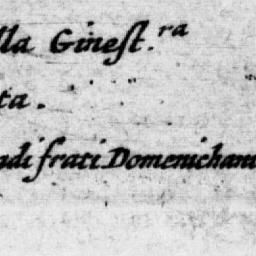 lla Ginest.ra
ta.
ndi frati Domenichani